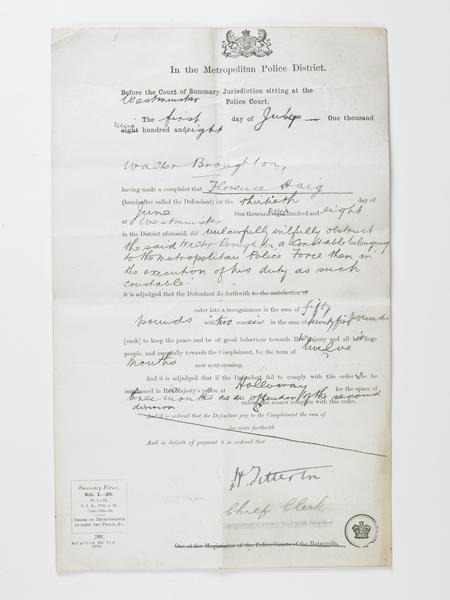 In the Metropolitan Police District.
Before the Court of Summary Jurisdiction sitting at the
Westminster Police Court.
The first day of July One thousand
nine
eight hundred and eight
Walter Broughton,
having made a complaint that Florence Haig
(hereinafter called the Defendant) on the thirtieth day of
June One thousand nine hundred and eight
at Westminster
in the District aforesaid, did unlawfully wilfully obstruct
the said Walter Broughton, a Constable belonging
to the Metropolitan Police Force then in
the execution of his duty as such
constable.
it is adjudged that the Defendant do forthwith to the satisfaction of
enter into a recognizance in the sum of fifty
pounds with two in the sum of twenty five pounds
[each] to keep the peace and be of good behaviour towards His Majesty and all his liege
people, and especially towards the Complainant, for the term of twelve
months now next ensuing.
And it is adjudged that if the Defendant fail to comply with this order be
imprisoned in His Majesty's prison at Holloway for the space of
three months as an offender of the second
division unless sooner complies with this order.
And it is ordered that the Defendant pay to the Complainant the sum of
for costs forthwith
And in default of payment it is ordered that
Chief Clerk
WESTMINSTER POLICE COURT
One of the Magistrates of the Police Courts of the Metropolis.
Summary Forms.
ORDER OF RECOGNIZANCE
TO KEEP THE PEACE, &c.